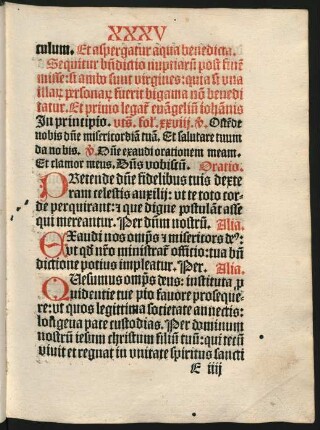 XXXV
culum. Et aspergatur aqua benedicta.
Sequitur bñdictio nuptiarũ post finẽ
misse: si ambo sunt virgines: quia si vna
illarũ personarũ fuerit bigama nõ benedi
tatur. Et primo legat̃ euãgeliũ iohãnis
In principio. vt s̃. fol. xxviij. ꝟ. Ostẽde
nobis dñe misericordiã tuã. Et salutare tuum
da nobis. ꝟ Dñe exaudi orationem meam.
Et clamor meus. Dñs vobiscũ. Oratio.
PRetende dñe fidelibus tuis dexte
ram celestis auxilij: vt te toto cor
de perquirant: ⁊ que digne postulãt asse
qui mereantur. Per dñm nostrũ. Alia.
EXaudi nos omp̃s ⁊ misericors de⁹:
vt qď nr̃o ministrat̃ officio: tua bñ
dictione potius impleatur. Per. Alia.
QUesumus omp̃s deus: instituta ꝓ
uidentie tue pio fauore proseque
re: vt quos legittima societate annectis:
longeua pace custodias. Per dominum
nostrũ iesum christum filiũ tuũ: qui tecũ
viuit et regnat in vnitate spiritus sancti
E iiij